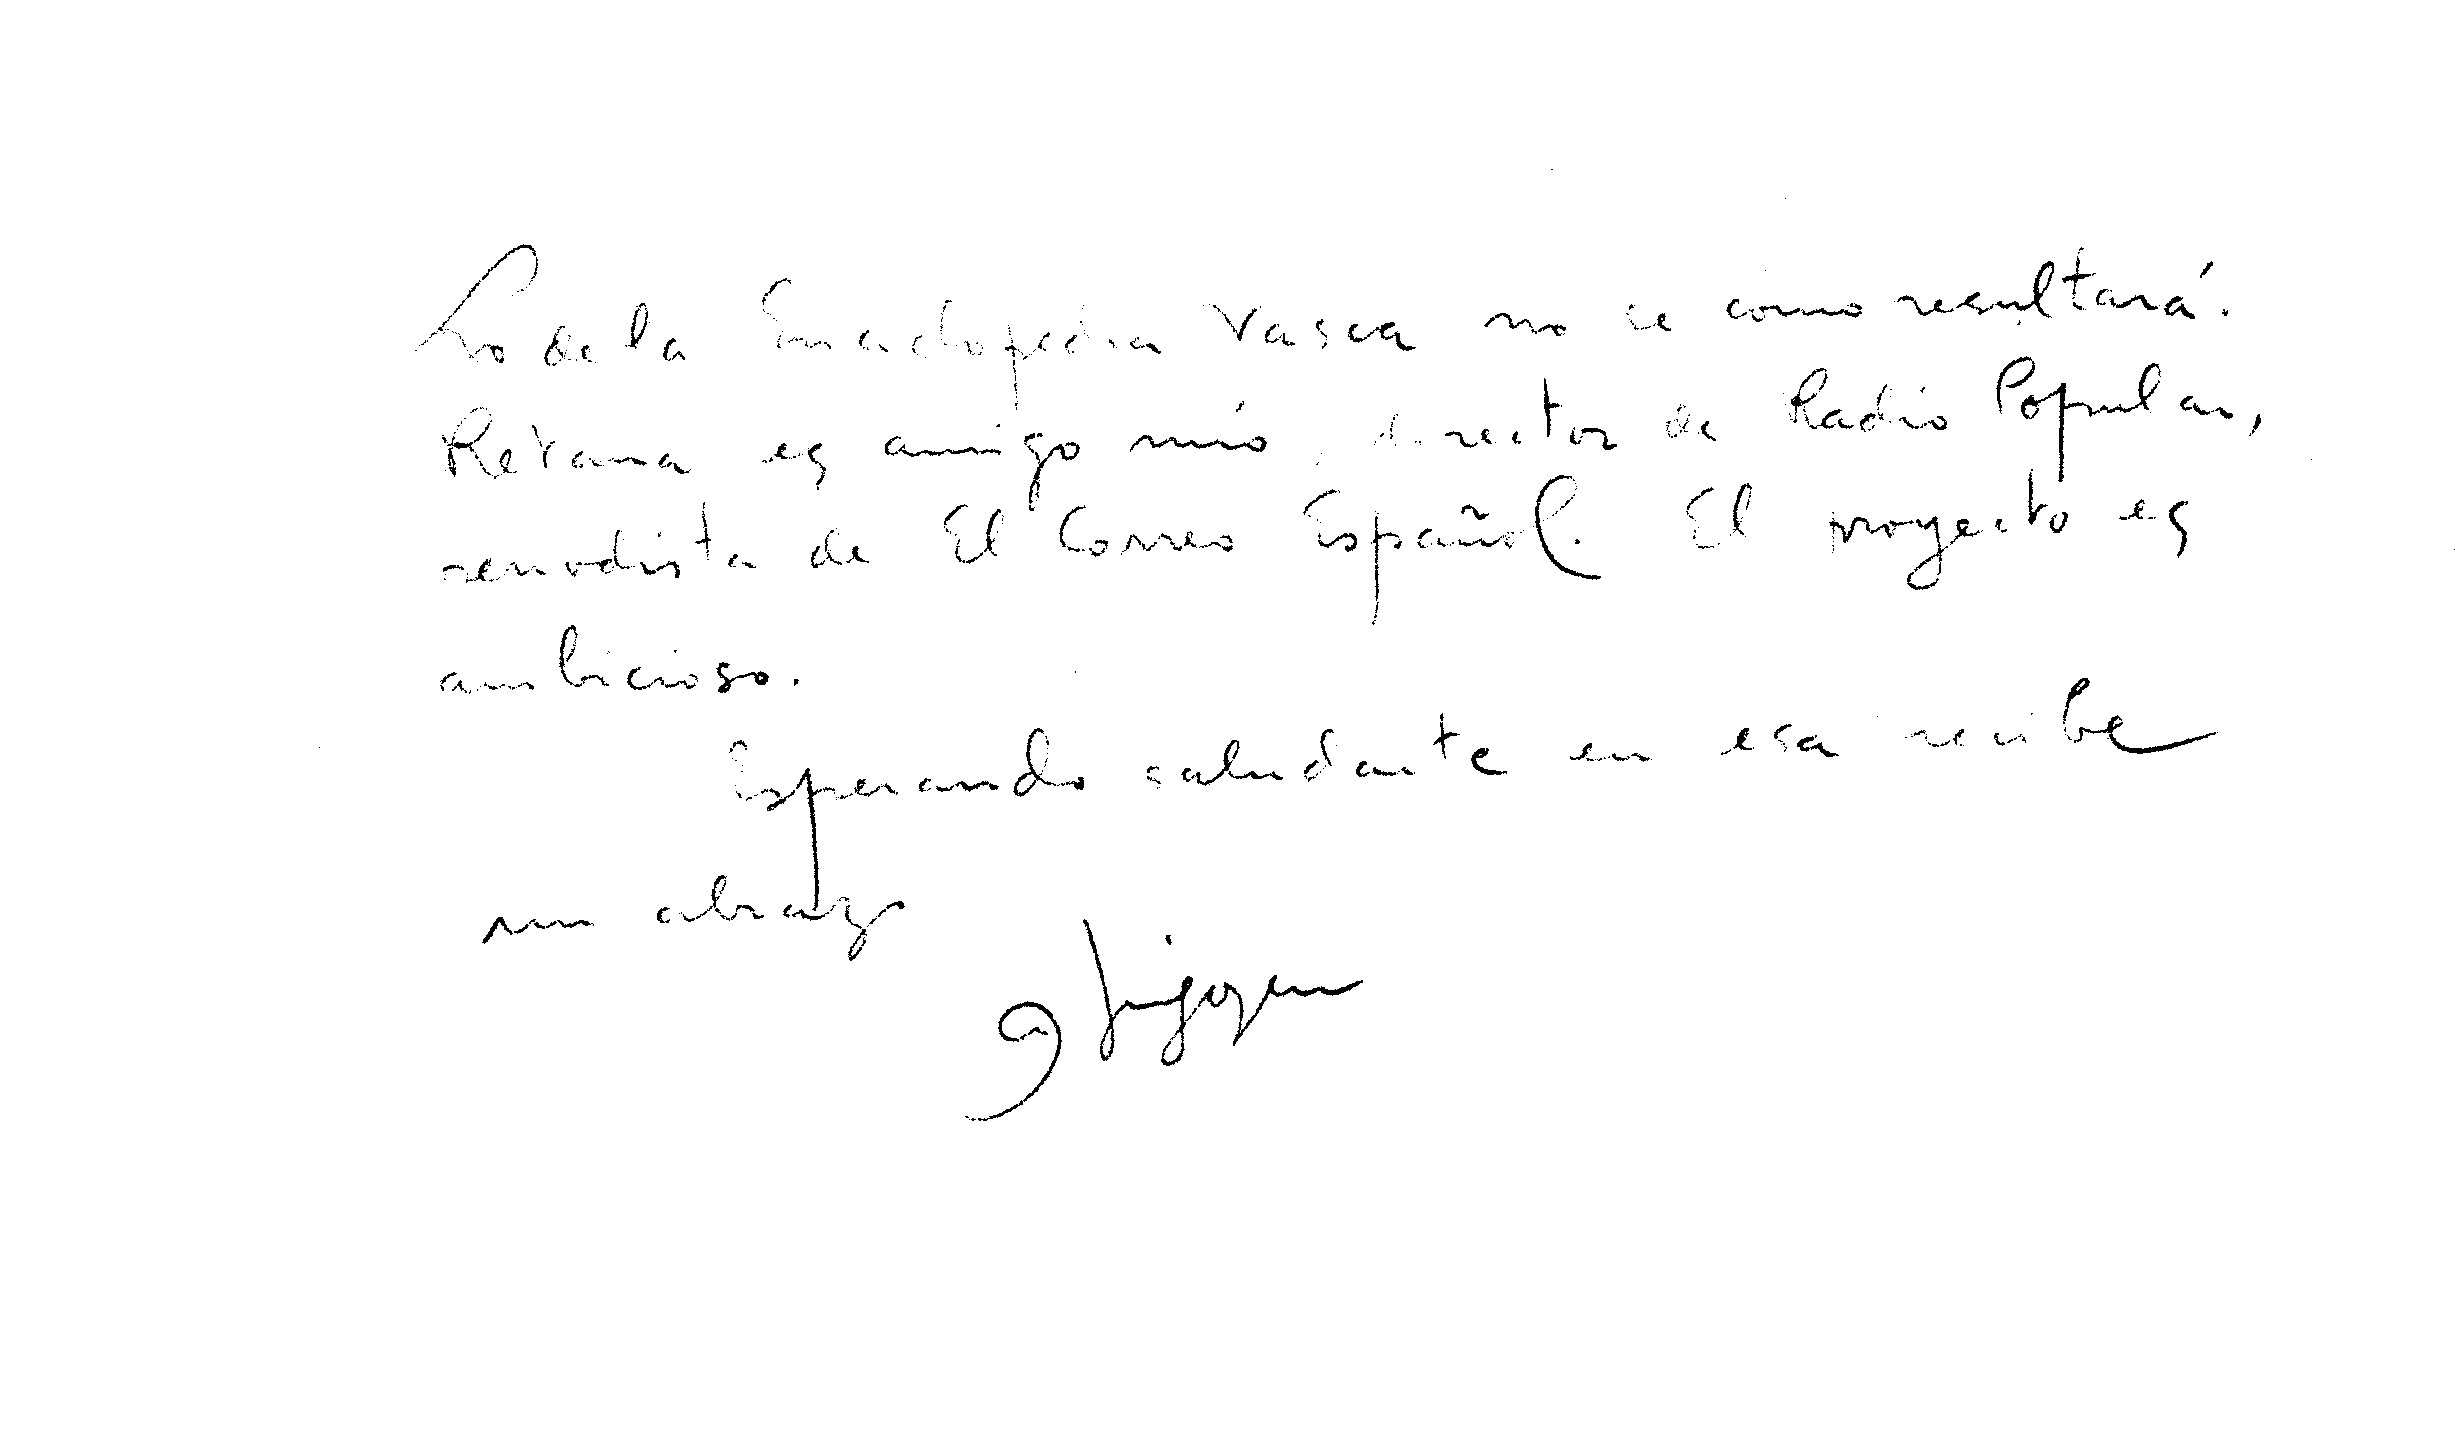 Lo de la Enciclopedia Vasca no se como resultará.
Retana es amigo mío, director de Radio Popular,
periodista de El Correo Español. El proyecto es
ambicioso.
Esperando saludarte en esa recibe
un abrazo
Yrigoyen